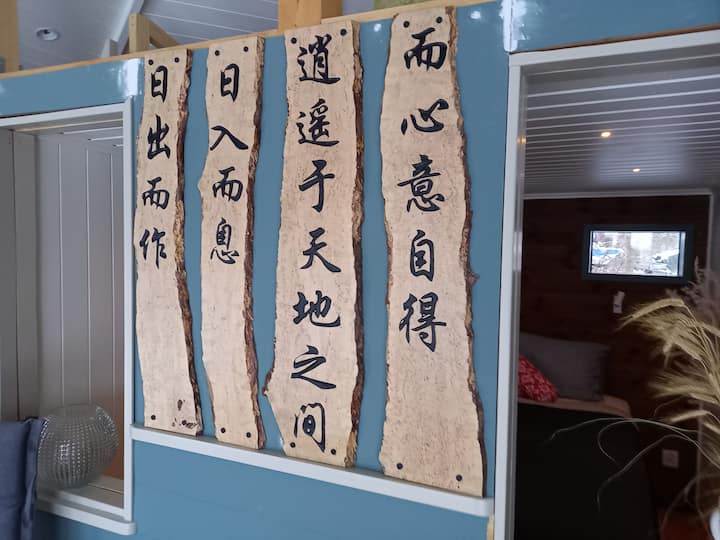 日出而作
日入而息
逍遥于天地之间
而心意自得